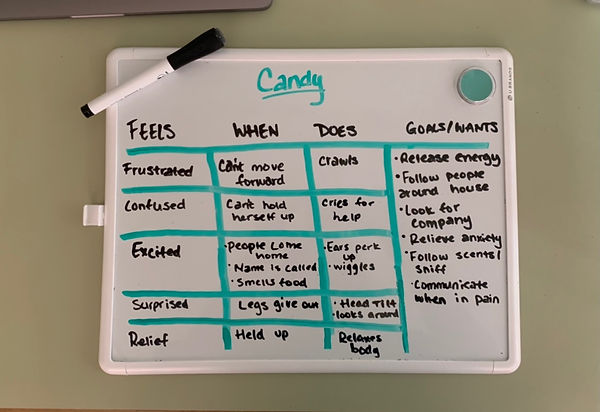 Candy
FEELS WHEN DOES GOALS/WANTS
Frustrated
Can't move
forward
Crawls
Confused
Can't hold
herself up
Cries for
help
Excited
• People come
home
• Name is called
• Smells food
• Ears perk
up
• wiggles
Surprised
Legs give out
• Head Tilt
• looks around
Relief
Held up
Relaxes
body
• Release energy
• Follow people
around house
• Look for
company
• Relieve anxiety
• Follow scents/
sniff
• Communicate
when in pain
U BRANDS